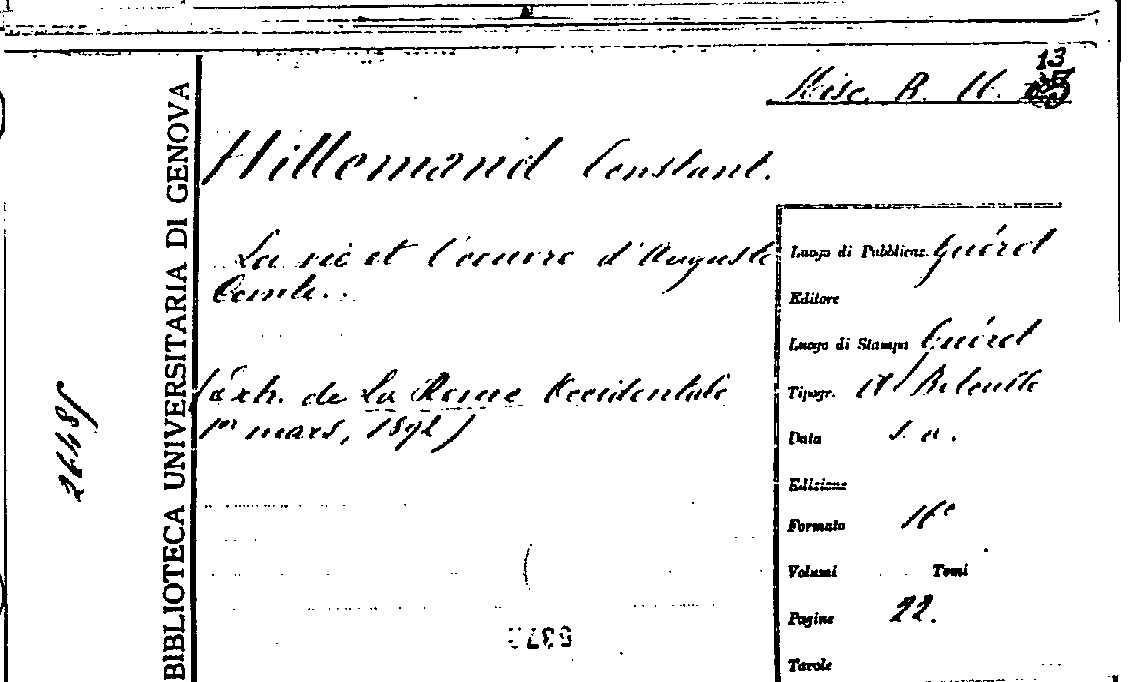 Misc. B. 11. 13
Hillemand Constant.
La vie et l'oeuvre d'Auguste
Comte..
(extr. de La Revue Occidentale
1er mars, 1892)
BIBLIOTECA UNIVERSITARIA DI GENOVA
Luogo di Pubblicaz. Guéret
Editore
Luogo di Stampa Guéret
Tipogr.
Data s. a.
Edizione
Formato 16°
Volumi Tomi
Pagine 22.
Tavole